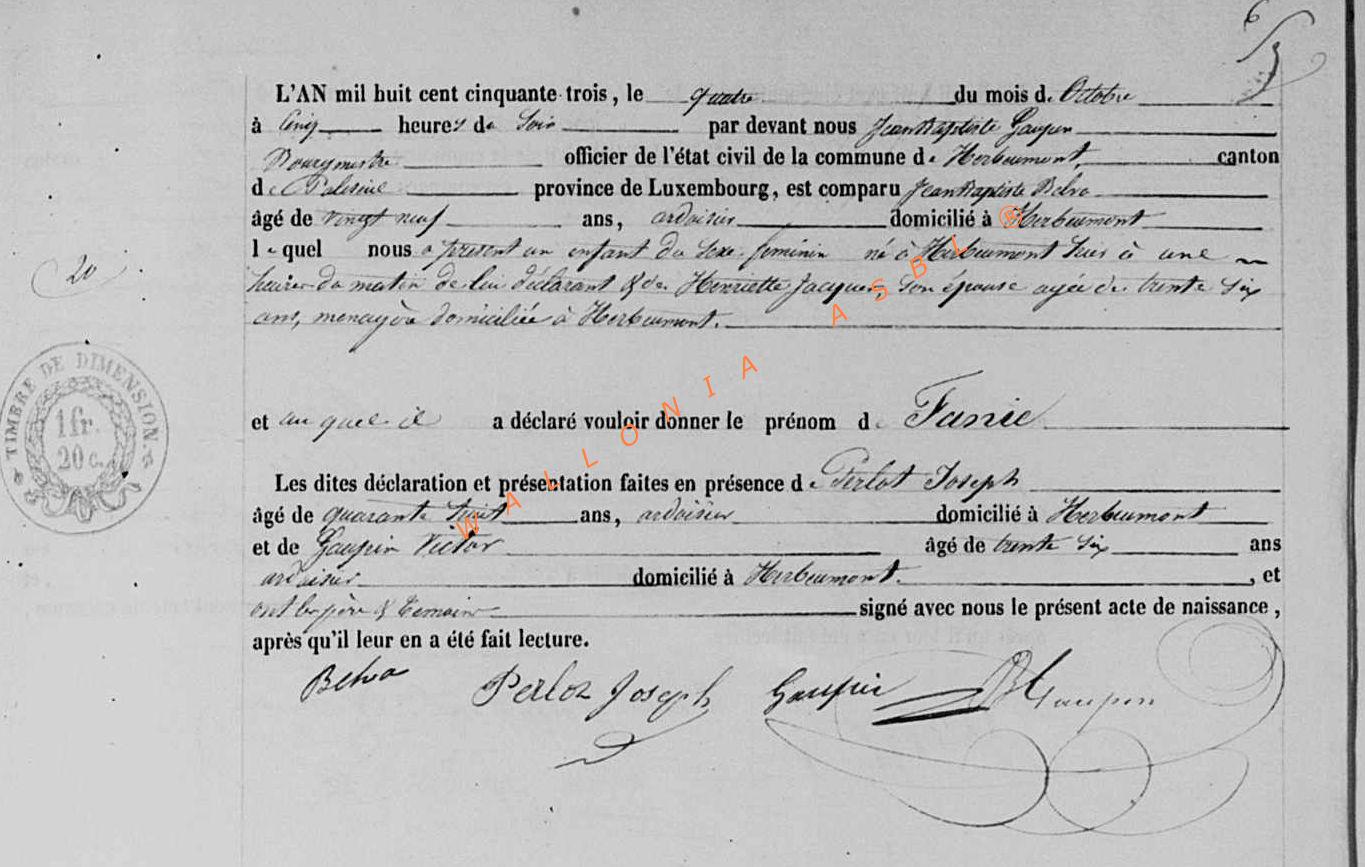 L'AN mil huit cent cinquante trois, le quatre du mois d. Octobre
à Cinq heures de Soir par devant nous Jean Baptiste Gaupin
Bourgmestre officier de l'état civil de la commune de Herbeumont, canton
de Paliseul province de Luxembourg, est comparu Jean Baptiste Behva
âgé de vingt neuf ans, ardoisier domicilié à Herbeumont
lequel nous a présent un enfant du sexe feminin né à Herbeumont hier à une
heures du matin de lui déclarant & de Henriette Jacques, son épouse agée de trente six
ans, menagère domiciliée à Herbeumont.
20
TIMBRE DE DIMENSION
1 fr.
20 c.
et auquel il a déclaré vouloir donner le prénom de Fanie
Les dites déclaration et présentation faites en présence de Perlot Joseph
âgé de quarante huit ans, ardoisier domicilié à Herbeumont
et de Gaupin Victor âgé de trente six ans
ardoisier domicilié à Herbeumont. , et
ont les père & temoins signé avec nous le présent acte de naissance,
après qu'il leur en a été fait lecture.
Behva Perlot Joseph Gaupin JB Gaupin
WALLONIA ASBL ®